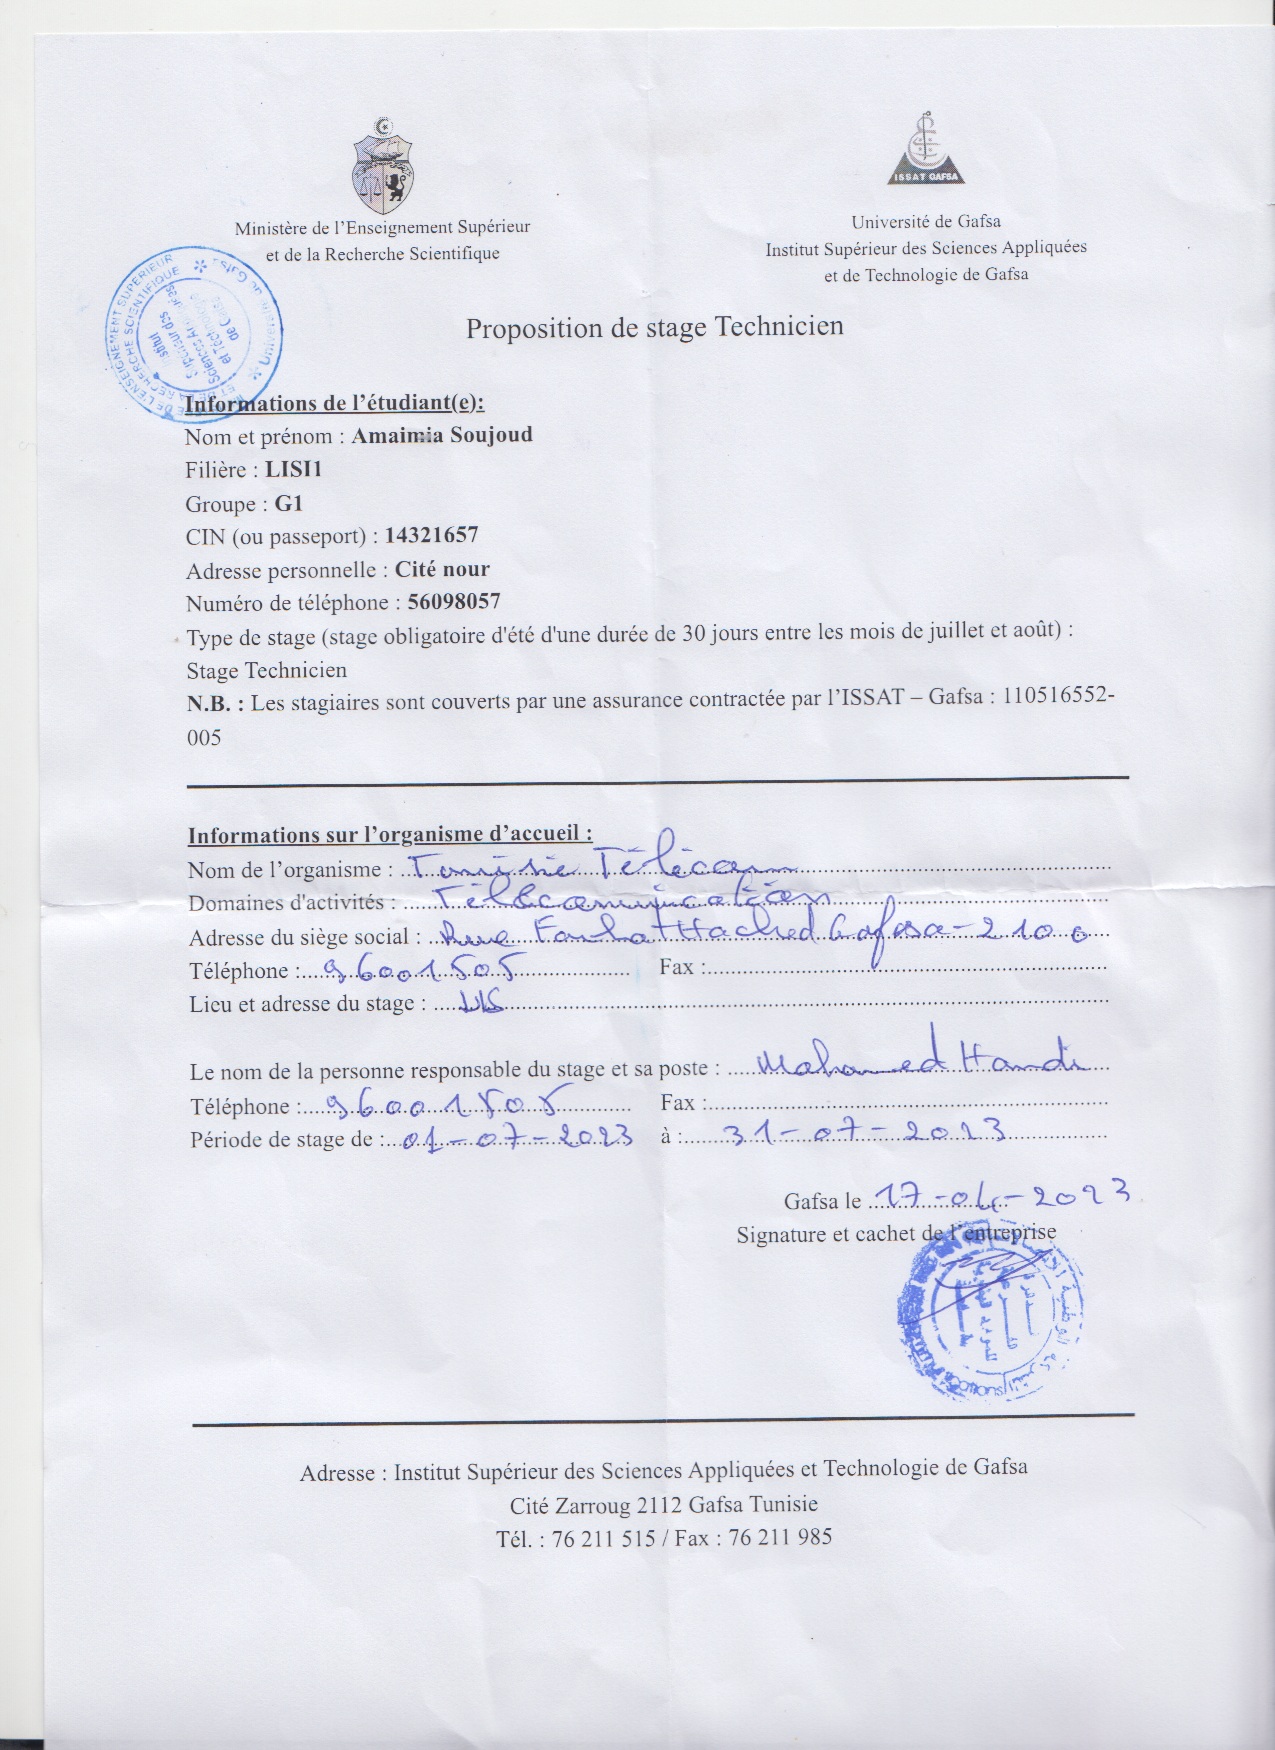 ISSAT GAFSA
Ministère de l'Enseignement Supérieur
et de la Recherche Scientifique
Université de Gafsa
Institut Supérieur des Sciences Appliquées
et de Technologie de Gafsa
Proposition de stage Technicien
Informations de l'étudiant(e):
Nom et prénom : Amaimia Soujoud
Filière : LISI1
Groupe : G1
CIN (ou passeport) : 14321657
Adresse personnelle : Cité nour
Numéro de téléphone : 56098057
Type de stage (stage obligatoire d'été d'une durée de 30 jours entre les mois de juillet et août) :
Stage Technicien
N.B. : Les stagiaires sont couverts par une assurance contractée par l'ISSAT – Gafsa : 110516552-
005
Informations sur l'organisme d'accueil :
Nom de l'organisme : Tunisie Télécom
Domaines d'activités : Télécommunication
Adresse du siège social : Rue Farhat Hached Gafsa - 2100
Téléphone : 96001505 Fax :
Lieu et adresse du stage :
Le nom de la personne responsable du stage et sa poste : Mohamed Hamdi
Téléphone : 96001505 Fax :
Période de stage de : 01-07-2023 à : 31-07-2023
Gafsa le 17-04-2023
Signature et cachet de l'entreprise
Adresse : Institut Supérieur des Sciences Appliquées et Technologie de Gafsa
Cité Zarroug 2112 Gafsa Tunisie
Tél. : 76 211 515 / Fax : 76 211 985